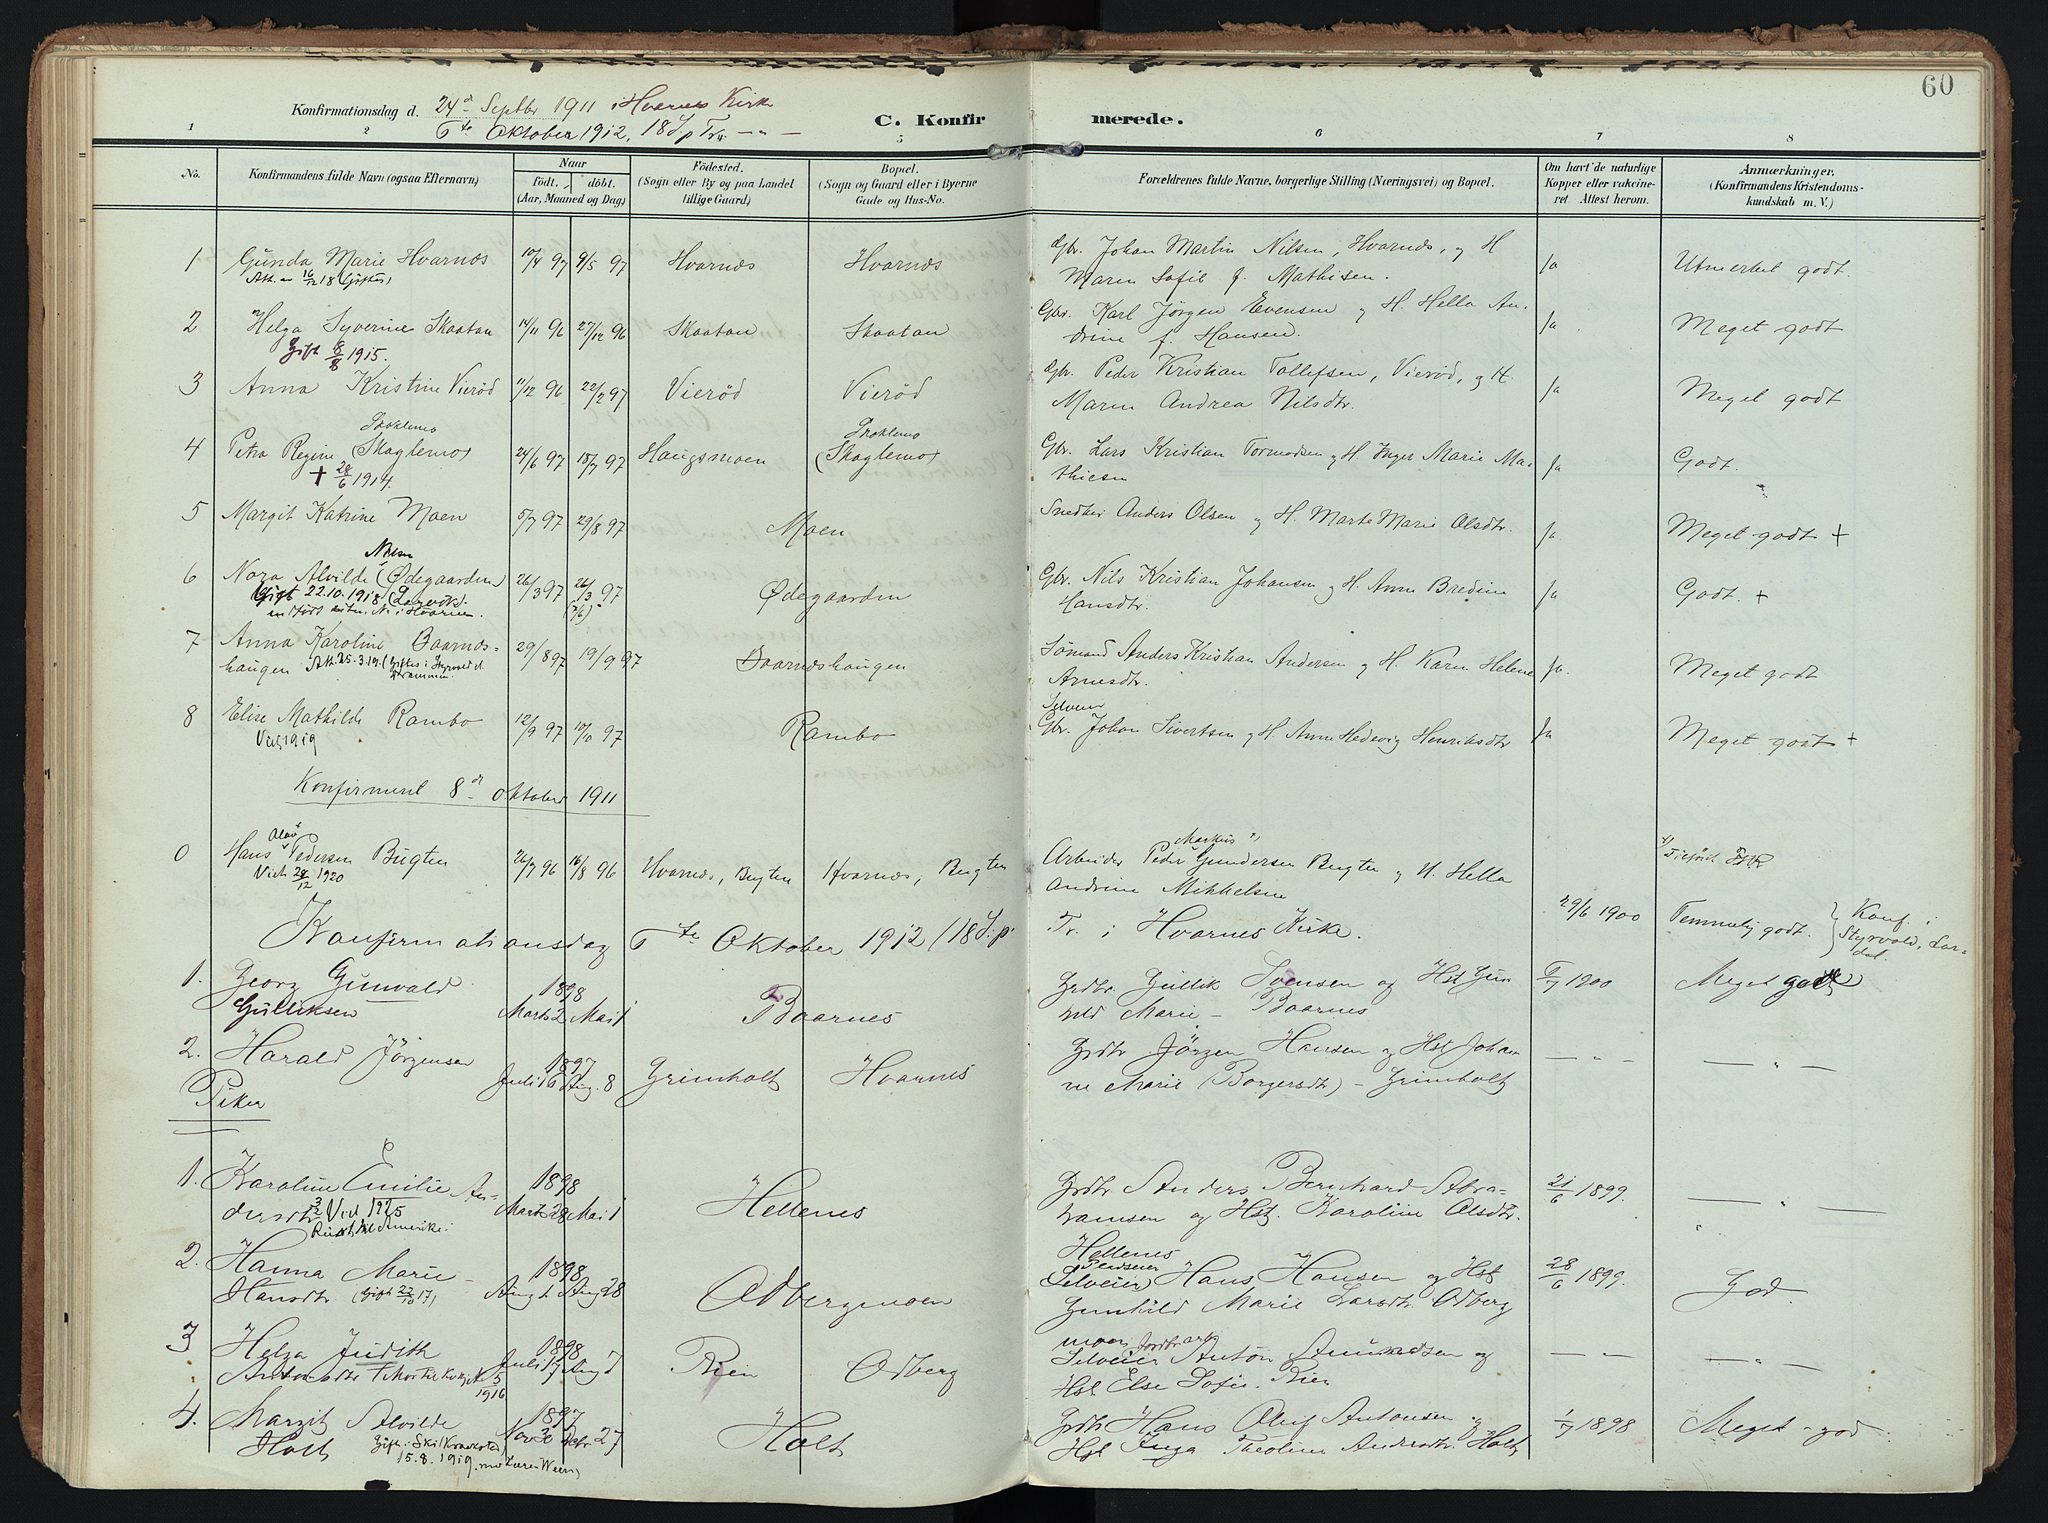 60
Konfirmationsdag d. 24d Septbr 1911 i Hvarnes Kirke
6te Oktober 1912, 18 S. p Tr. — " —
C. Konfirmerede.
1 2 5 6 7 8
No.
Konfirmandens fulde Navn (ogsaa Efternavn)
Naar
Födt. döbt.
(Aar, Maaned og Dag)
Födested.
(Sogn eller By og paa Landet
tillige Gaard)
Bopæl.
(Sogn og Gaard eller i Byerne
Gade og Hus-No.
Forældrenes fulde Navne, borgerlige Stilling (Næringsvei) og Bopæl.
Om havt de naturlige
Kopper eller vakcine-
ret Attest herom.
Anmærkninger.
(Konfirmandens Kristendoms-
kundskab m. V.)
1 Gunda Marie Hvarnes 10/4 97 9/5 97 Hvarnes Hvarnes Gbr. Johan Martin Nilsen, Hvarnes, og H Ja Utmerket godt.
Att. 16/12 18 (Giftes) Maren Sofie f. Mathisen.
2 Helga Syverine Skaatan 14/11 96 27/12 96 Skaatan Skaatan Gbr. Karl Jørgen Evensen og H. Hella An- Ja Meget godt
Gift 8/8 1915. drine f. Hansen.
3 Anna Kristine Vierød 11/12 96 22/2 97 Vierød Vierød Gbr. Peder Kristian Tollefsen, Vierød, og H. Ja Meget godt
Maren Andrea Nilsdtr.
4 Petra Regine (Skaglemo) 24/6 97 18/7 97 Haugsmoen (Skaglemo) Gbr. Lars Kristian Tormodsen og H. Inger Marie Ma- Ja Godt.
+ 28/6 1914. thiesen
5 Margit Katrine Moen 5/7 97 29/8 97 Moen Snedker Anders Olsen og H. Marte Marie Olsdtr. Ja Meget godt +
Nilsen
6 Nora Alvilde (Ødegaarden) 26/3 97 26/3 97 Ødegaarden Gbr. Nils Kristian Johansen og H. Anne Bredine Ja Godt. +
Gift 22.10.1918 (Larvik). (7/6) Hansdtr.
7 Anna Karoline Baarnes- 29/8 97 19/9 97 Baarneshaugen Sømand Anders Kristian Andersen og H. Karen Helene Ja Meget godt
haugen Att. 25.3.19. (Giftes i Drammen. Arnesdtr.
8 Elise Mathilde Rambo 12/9 97 10/10 97 Rambo Gbr. Johan Sivertsen og H. Anne Hedevig Henriksdtr Ja Meget godt +
Viet 1919 Selveier
Konfirmeret 8de oktober 1911
Olav Markus
0 Hans Pedersen Bugten 26/7 96 16/8 96 Hvarnes, Bugten Hvarnes, Bugten Arbeider Peder Gundersen Bugten og H. Hella 29/6 1900 Temmelig godt. Konf. i
Viet 28/12 1920 Andrine Mikkelsen Styrvold, Lar-
dal.
Konfirmationsdag 6te Oktober 1912 (18 S. p. Tr. i Hvarnes Kirke.
1. Georg Gunvald 1898 Baarnes Grdbr. Gullik Svensen og Hst Gun 5/7 1900 Meget godt
Gulliksen Marts 2 Mai 1 hild Marie — Baarnes
2. Harald Jörgensen 1897 Grimholt Hvarnes Grdbr Jörgen Hansen og Hst Johan — " — — " —
Juli 16 Aug. 8 ne Marie (Borgersdtr) — Grimholt
Piker
1. Karoline Emilie An- 1898 Hellenes Grdbr Anders Bernhard Abra- 21/6 1899. — " —
dersdtr Viet 1925 Marts 28 Mai 1 hamsen og Hst. Karoline Olsdtr.
Reist til Amerika. Hellenes
2. Hanna Marie 1898 Odbergmoen Selveier Hans Hansen og Hst 28/6 1899. God.
Hansdtr (Gift 22/10 17) Aug 1 Aug 28 Gunhild Marie Larsdtr Odberg
moen
3 Helga Judith 1898 Rien Odberg Selveier Anton Amundsen og — " — — " —
Antonsdtr Juli 17 Aug 7 Hst Else Sofie. Rien
1916
4. Margit Alvilde 1897 Holt Grdbr Hans Oluf Antonsen og 1/7 1898 Meget god
Holt Nov 30 Febr. 27 Hst Inga Theoline Andersdtr. Holt
Gift i Ski (Kraakstad)
15.8.1919.